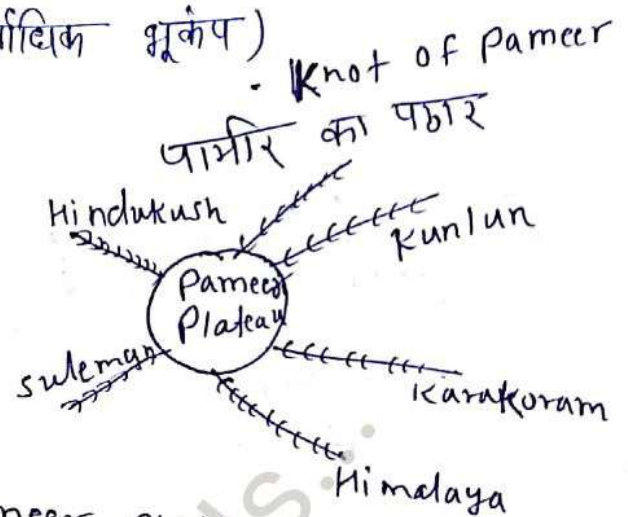 र्वाधिक भूकंप)
. Knot of Pameer
पामीर का पठार
Hindukush
Kunlun
Pameer
Plateau
suleman
Karakoram
Himalaya